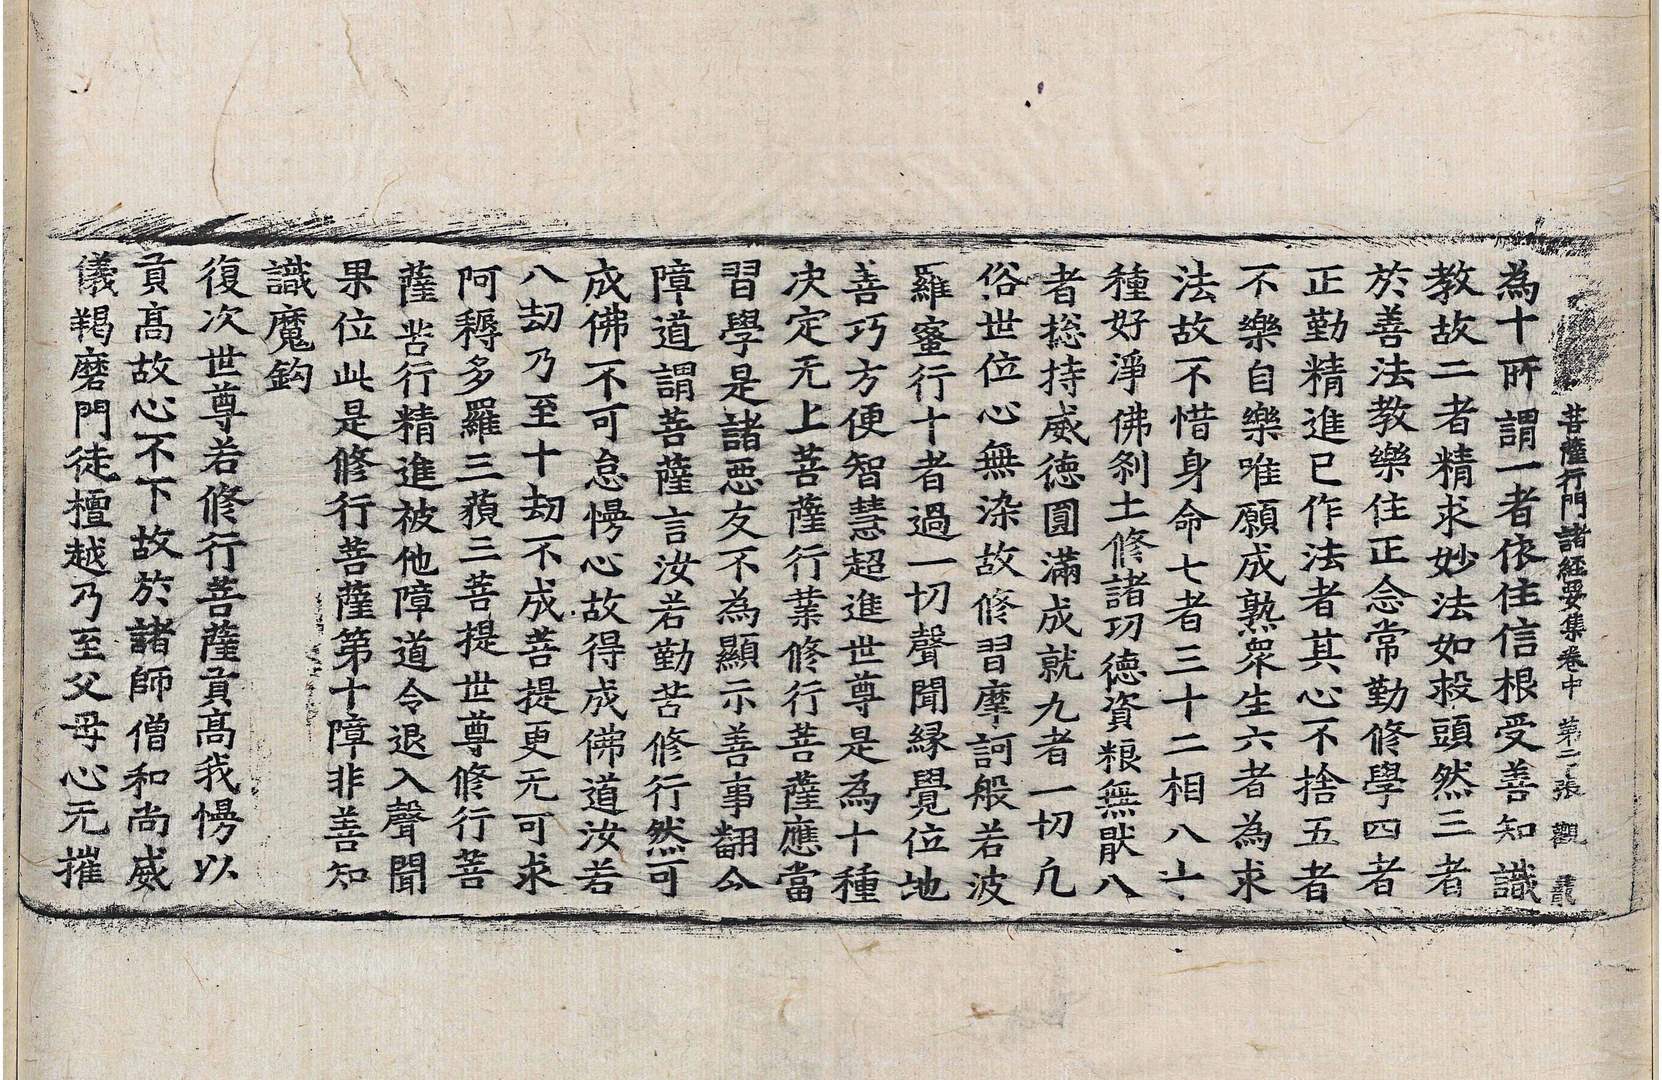 菩薩行門諸經要集卷中 第二張 觀
為十所謂一者依住信根受善知識
教故二者精求妙法如救頭然三者
於善法教樂住正念常勤修學四者
正勤精進已作法者其心不捨五者
不樂自樂唯願成熟衆生六者為求
法故不惜身命七者三十二相八十
種好淨佛刹土修諸功德資粮無猒八
者揔持威德圓滿成就九者一切凡
俗世位心無染故修習摩訶般若波
羅蜜行十者過一切聲聞緣覺位地
善巧方便智慧超進世尊是為十種
决定无上菩薩行業修行菩薩應當
習學是諸惡友不為顯示善事翻令
障道謂菩薩言汝若勤苦修行然可
成佛不可怠慢心故得成佛道汝若
八劫乃至十劫不成菩提更无可求
阿耨多羅三藐三菩提世尊修行菩
薩苦行精進被他障道令退入聲聞
果位此是修行菩薩第十障非善知
識魔鈎
復次世尊若修行菩薩貢高我慢以
貢高故心不下故於諸師僧和尚威
儀羯磨門徒檀越乃至父母心无摧